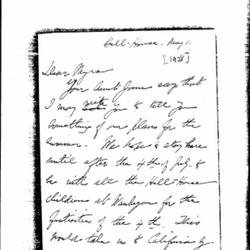 Hull-House. May 1.
[1928]
Dear Myra
Your Aunt Jane says that
I may write you & tell you
something of our plans for the
summer. We hope to stay here
until after the 4th of July &
be with all the Hull-House
children at Waukegan for the
festivities of the 4th. This
would take us to California by